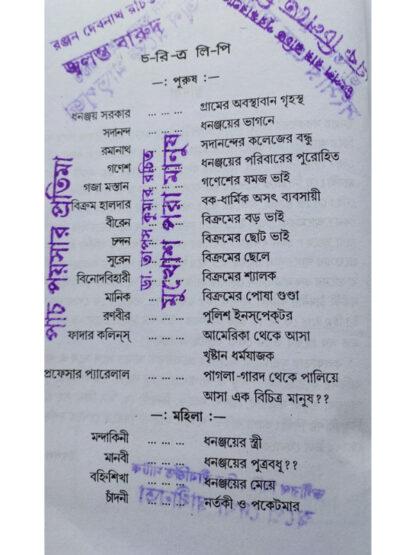 রঞ্জন দেবনাথ রচিত
জ্বলন্ত বারুদ
চ-রি-ত্র লি-পি
—: পুরুষ :—
ধনঞ্জয় সরকার ... ... ... গ্রামের অবস্থাবান গৃহস্থ
সদানন্দ ... ... ... ধনঞ্জয়ের ভাগনে
রমানাথ ... ... ... সদানন্দের কলেজের বন্ধু
গণেশ ... ... ... ধনঞ্জয়ের পরিবারের পুরোহিত
গজা মস্তান ... ... ... গণেশের যমজ ভাই
বিক্রম হালদার ... ... ... বক-ধার্মিক অসৎ ব্যবসায়ী
বীরেন ... ... ... বিক্রমের বড় ভাই
চন্দন ... ... ... বিক্রমের ছোট ভাই
সুরেন ... ... ... বিক্রমের ছেলে
বিনোদবিহারী ... ... ... বিক্রমের শ্যালক
মানিক ... ... ... বিক্রমের পোষা গুণ্ডা
রণবীর ... ... ... পুলিশ ইনস্পেক্টর
ফাদার কলিন্স্ ... ... ... আমেরিকা থেকে আসা
খৃষ্টান ধর্মযাজক
প্রফেসার প্যারেলাল ... ... ... পাগলা-গারদ থেকে পালিয়ে
আসা এক বিচিত্র মানুষ??
—: মহিলা :—
মন্দাকিনী ... ... ... ধনঞ্জয়ের স্ত্রী
মানবী ... ... ... ধনঞ্জয়ের পুত্রবধূ??
বহ্নিশিখা ... ... ... ধনঞ্জয়ের মেয়ে
চাঁদনী ... ... ... নর্তকী ও পকেটমার
পাঁচ পয়সার প্রতিমা
ডাঃ তাপস কুমার রচিত
মুখোশ পরা মানুষ